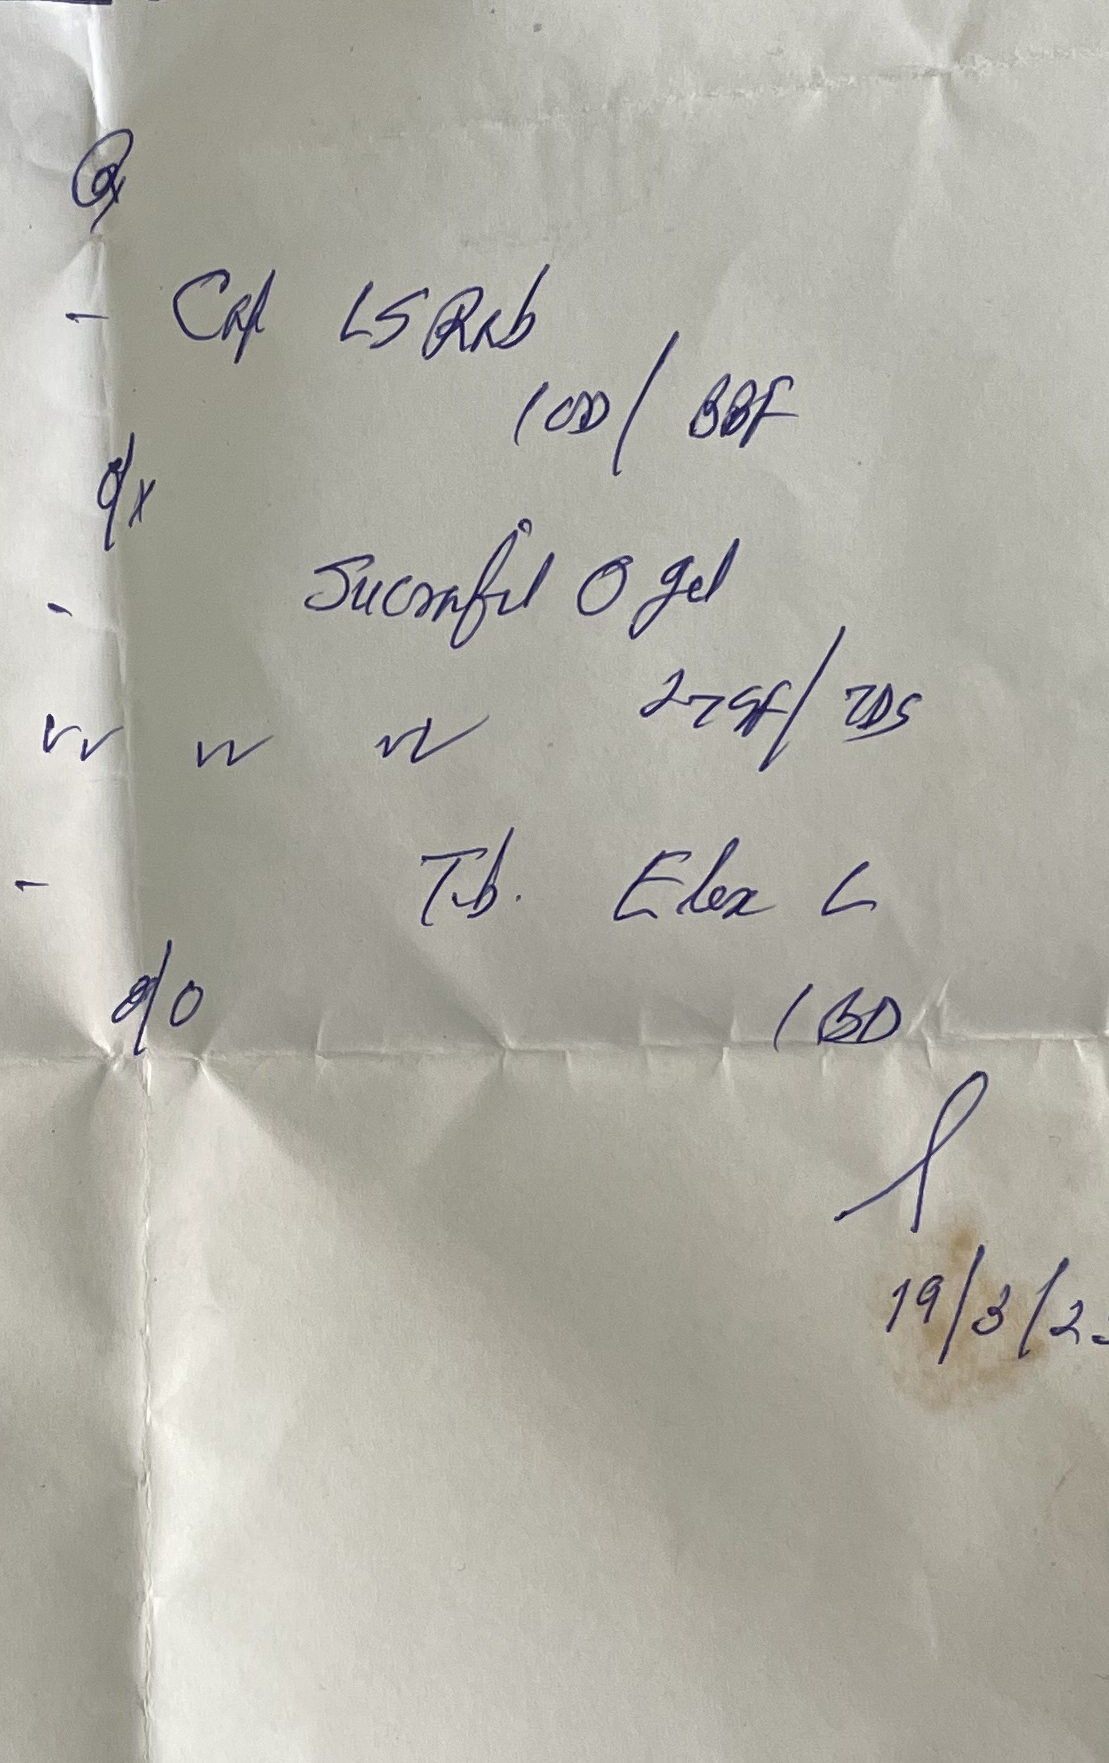 Rx
- Cap LS Rab
1 OD / BBF
- Sucrafil O gel
2 TSF / TDS
- Tab. Elex L
1 BD
19/3/2